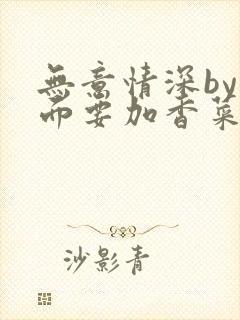 無意情深by
而要加香菜
沙影青